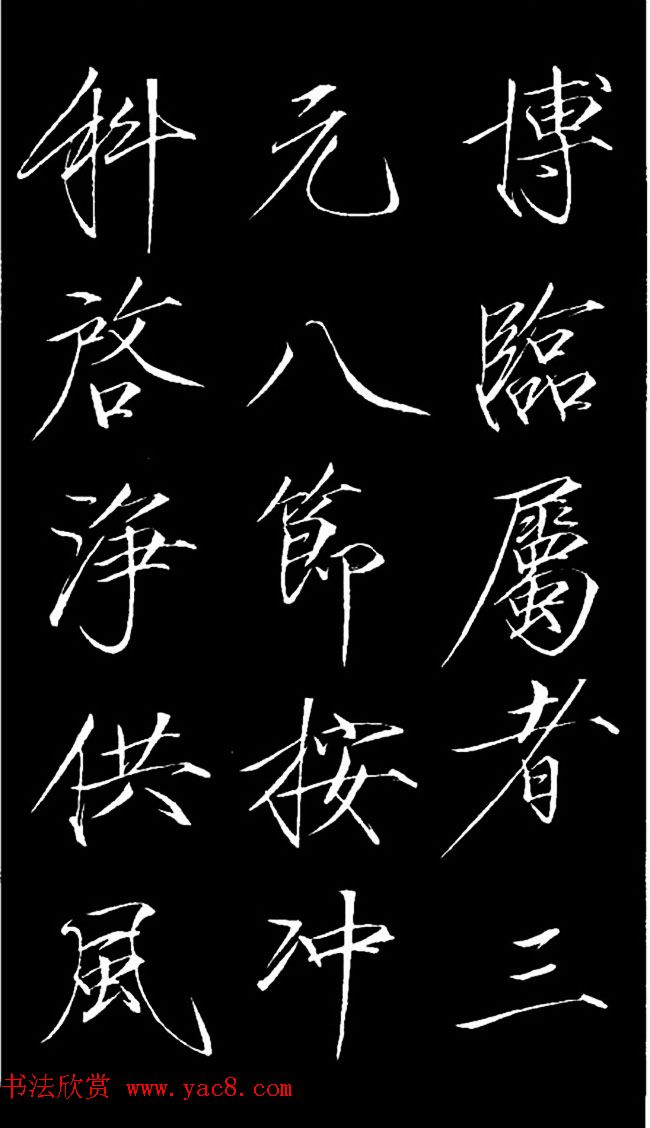 博臨屬者三
元八節按冲
科啓浄供風
书法欣赏 www.yac8.com